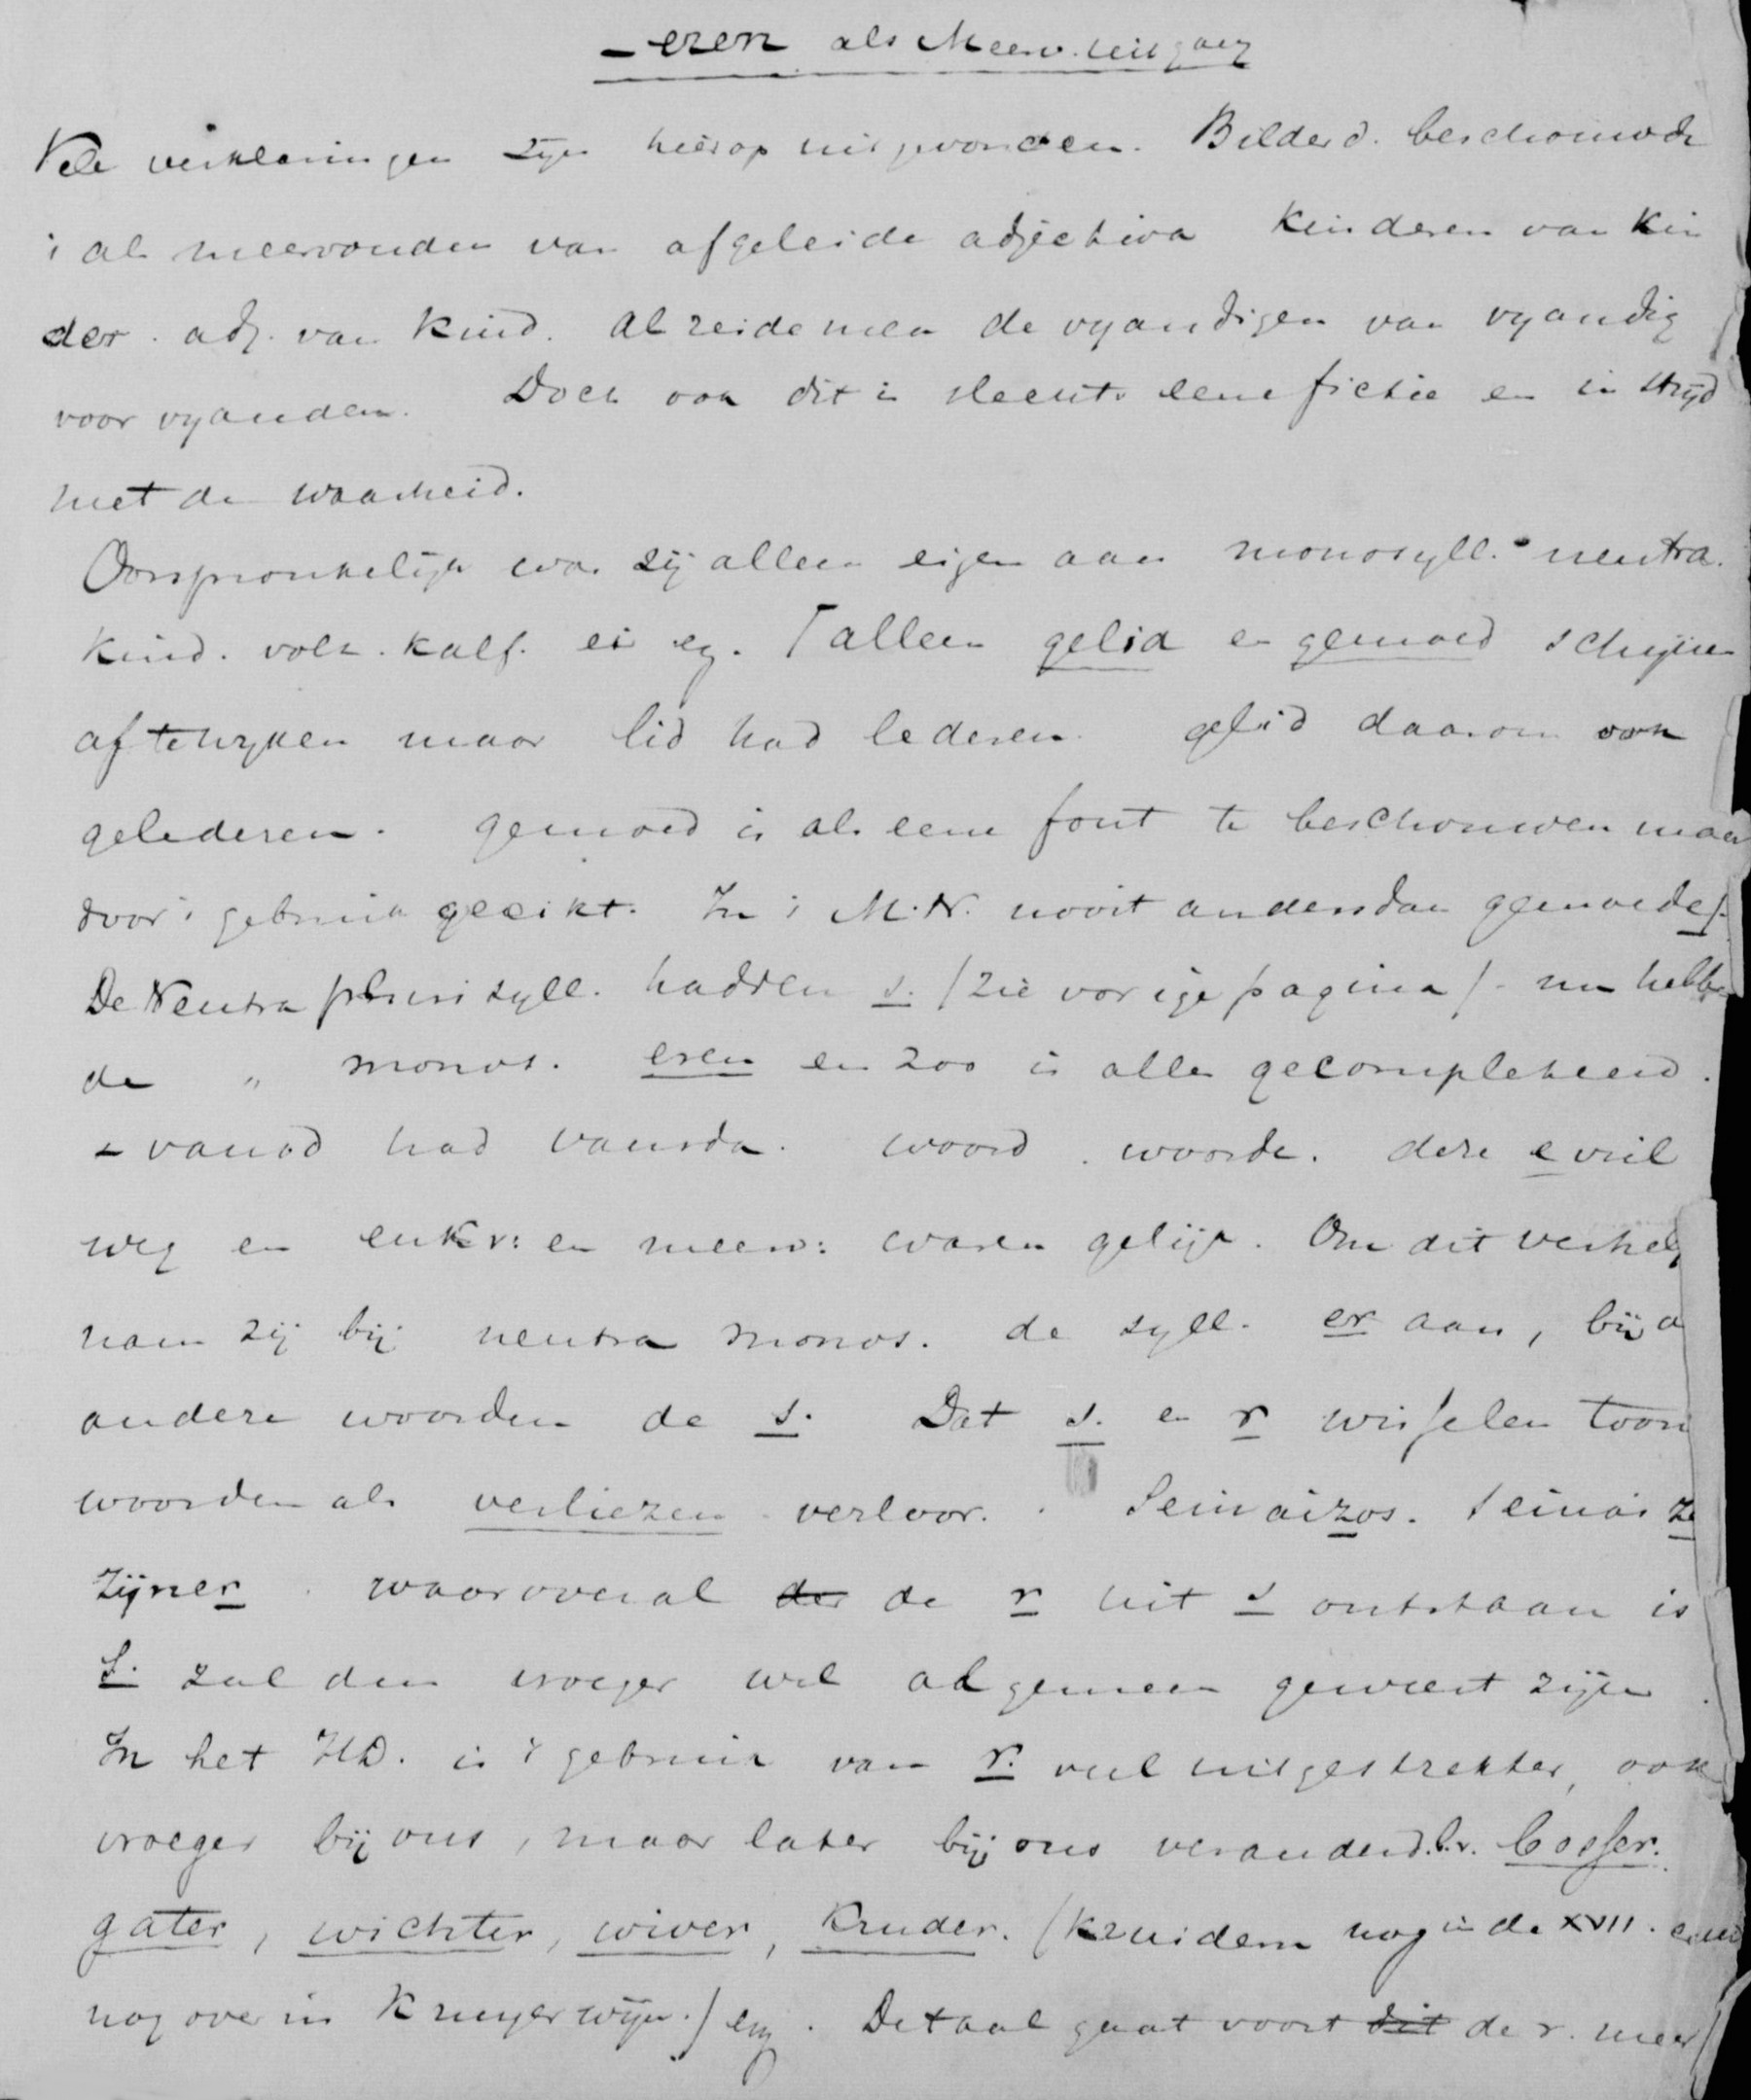 - eren als Meerv. uitgang
Vele verklaringen zijn hierop uitgevonden. Bilderd. beschouwde
't als meervouden van afgeleide adjectiva kinderen van kin
der. adj. van kind. Al zeide men de vyandigen van vyandig
voor vyanden. Doch ook dit is slechts eene fictie en in stryd
met de waarheid.
Oorspronkelijk was zij alleen eigen aan monosyll. neutra.
kind. volk. kalf. ei eg. / alleen gelid en gemoed schijnen
af te wyken maar lid had lederen. gelid daarom ook
gelederen. gemoed is als eene fout te beschouwen maar
door 't gebruik geeikt. In 't M.N. nooit anders dan gemoede/.
De Neutra plurisyll. hadden s. / zie vorige pagina / - nu hebben
de " monos. eren en zoo is alles gecompleteerd.
- vaurd had vaurda. woord. woorde. deze e viel
weg en enkv: en meerv: waren gelijk. Om dit verhelp
nam zij bij neutra monos. de syll. er aan, bij a
andere woorden de s. Dat s. en r wisselen toon
woorden als verliezen verloor. Seinaizos. seinai ze
zijner waar overal der de r uit s ontstaan is
S. zal dan vroeger wel algemeen geweest zijn.
In het HD. is 't gebruik van r. veel uitgestrekter, ook
vroeger bij ons, maar later bij ons veranderd. b.v. bosser.
gater, wichter, wiver, kruder. (kruidern nog in de XVII. eeuw
nog over in Kruyerwijn.) eng. De taal gaat voort dit de r. meer